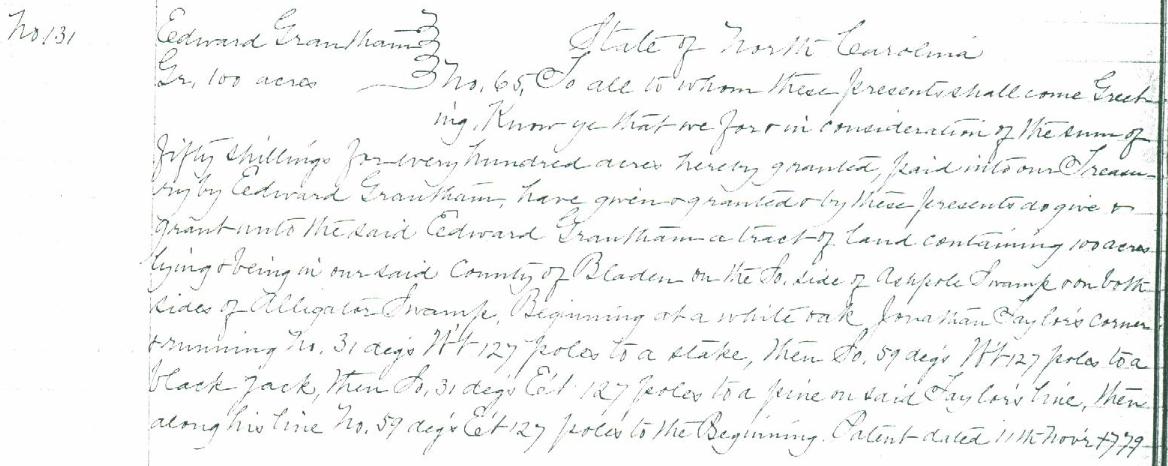 No 131
Edward Grantham
State of North Carolina
Gr. 100 acres
No. 65, To all to whom these presents shall come Greet-
ing. Know ye that we for & in consideration of the sum of
fifty shillings for every hundred acres hereby granted, paid into our Treasu-
ry by Eedward Grantham, have given & granted & by these presents do give &
grant unto the said Eedward Grantham a tract of land containing 100 acres
lying & being in our said County of Bladen on the So. side of Ashpole Swamp & on both
sides of Alligator Swamp, Beginning at a white oak Jonathan Taylor's corner
& running No. 31 degs W't 127 poles to a stake, then So. 59 degs W't 127 poles to a
black jack, then So. 31 degs E't 127 poles to a pine on said Taylor's line, then
along his line No. 59 degs E't 127 poles to the Beginning. Patent dated 11th Nov'r 1779